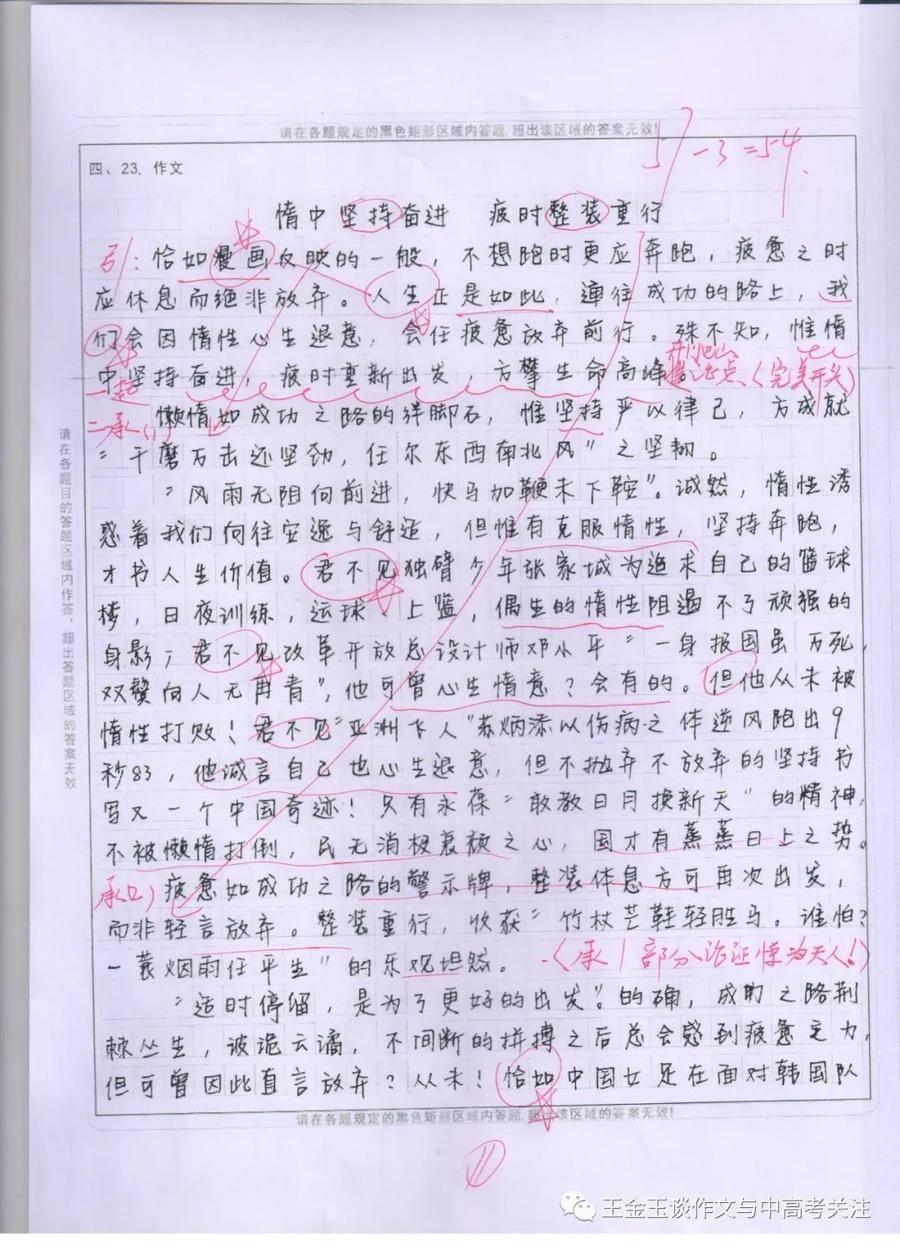 请在各题规定的黑色矩形区域内答题,超出该区域的答案无效!
57-3=54.
四、23. 作文
惰中坚持奋进 疲时整装重行
引:恰如漫画反映的一般,不想跑时更应奔跑,疲惫之时
应休息而绝非放弃。人生正是如此,通往成功的路上,我
们会因惰性心生退意,会任疲惫放弃前行。殊不知,惟惰
中坚持奋进,疲时重新出发,方攀生命高峰。
(完美开头)
二承(1)
懒惰如成功之路的绊脚石,惟坚持严以律己,方成就
“千磨万击还坚劲,任尔东西南北风”之坚韧。
“风雨无阻向前进,快马加鞭未下鞍”。诚然,惰性诱
惑着我们向往安逸与舒适,但惟有克服惰性,坚持奔跑,
才书人生价值。君不见独臂少年张家城为追求自己的篮球
梦,日夜训练,运球、上篮,偶生的惰性阻遏不了顽强的
身影;君不见改革开放总设计师邓小平“一身报国虽万死,
双鬓向人无再青”,他可曾心生惰意?会有的。但他从未被
惰性打败!君不见“亚洲飞人”苏炳添以伤病之体逆风跑出9
秒83,他诚言自己也心生退意,但不抛弃不放弃的坚持书
写又一个中国奇迹!只有永葆“敢教日月换新天”的精神,
不被懒惰打倒,民无消极衰颓之心,国才有蒸蒸日上之势。
承(2)疲惫如成功之路的警示牌,整装休息方可再次出发,
而非轻言放弃。整装重行,收获“竹杖芒鞋轻胜马。谁怕?
一蓑烟雨任平生”的乐观坦然。
(承1部分论证惊为天人!)
“适时停留,是为了更好的出发”。的确,成功之路荆
棘丛生,波诡云谲,不间断的拼搏之后总会感到疲惫乏力,
但可曾因此直言放弃?从未!恰如中国女足在面对韩国队
请在各题规定的黑色矩形区域内答题,超出该区域的答案无效!
请在各题目的答题区域内作答,超出答题区域的答案无效
王金玉谈作文与中高考关注